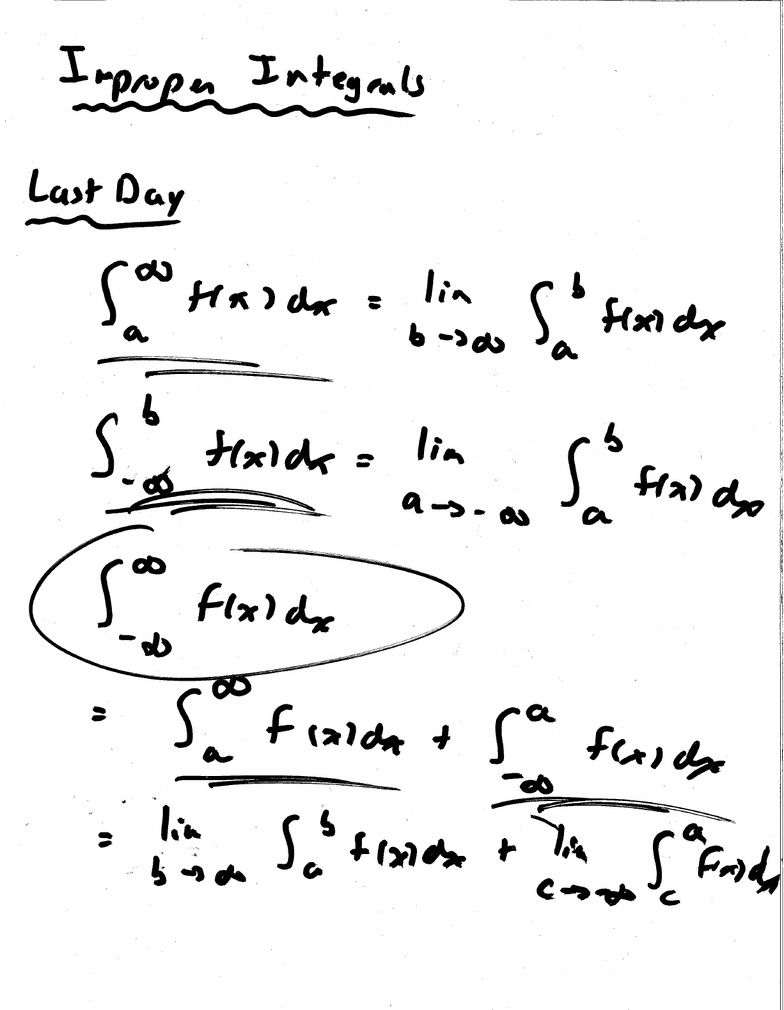 Improper Integrals
Last Day
∫_a^∞ f(x) dx = lim_{b→∞} ∫_a^b f(x) dx
∫_{-∞}^b f(x) dx = lim_{a→-∞} ∫_a^b f(x) dx
∫_{-∞}^∞ f(x) dx
= ∫_a^∞ f(x) dx + ∫_{-∞}^a f(x) dx
= lim_{b→∞} ∫_a^b f(x) dx + lim_{c→-∞} ∫_c^a f(x) dx